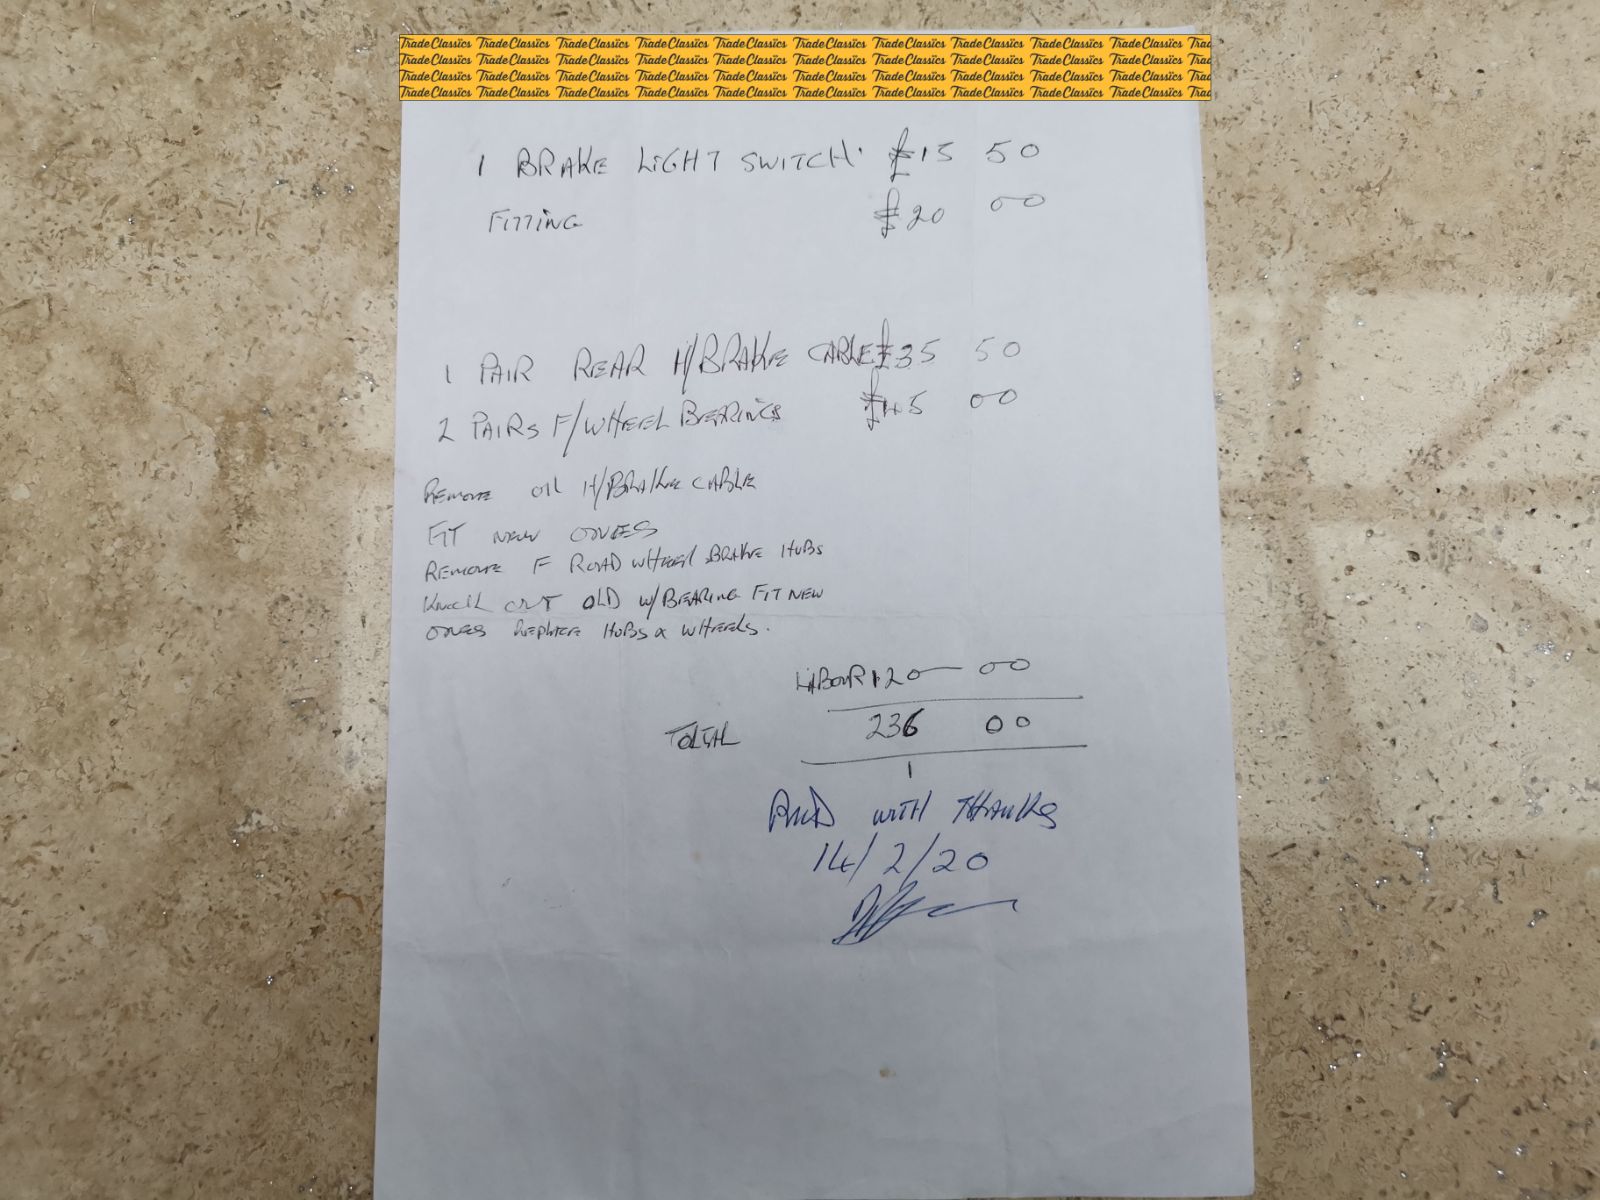 Trade Classics Trade Classics Trade Classics Trade Classics Trade Classics Trade Classics Trade Classics Trade Classics Trade Classics Trade Classics Trad
Trade Classics Trade Classics Trade Classics Trade Classics Trade Classics Trade Classics Trade Classics Trade Classics Trade Classics Trade Classics Trad
Trade Classics Trade Classics Trade Classics Trade Classics Trade Classics Trade Classics Trade Classics Trade Classics Trade Classics Trade Classics Trad
Trade Classics Trade Classics Trade Classics Trade Classics Trade Classics Trade Classics Trade Classics Trade Classics Trade Classics Trade Classics Trad
1 BRAKE LIGHT SWITCH. £15 50
FITTING £20 00
1 PAIR REAR H/BRAKE CABLE £35 50
2 PAIRS F/WHEEL BEARINGS £45 00
REMOVE H/BRAKE CABLE
FIT NEW ONES
REMOVE F ROAD WHEEL BRAKE HUBS
KNOCK OUT OLD W/BEARING FIT NEW
ONES REPLACE HUBS & WHEELS.
LABOUR 120 — 00
TOTAL 236 00
PAID WITH THANKS
14/2/20